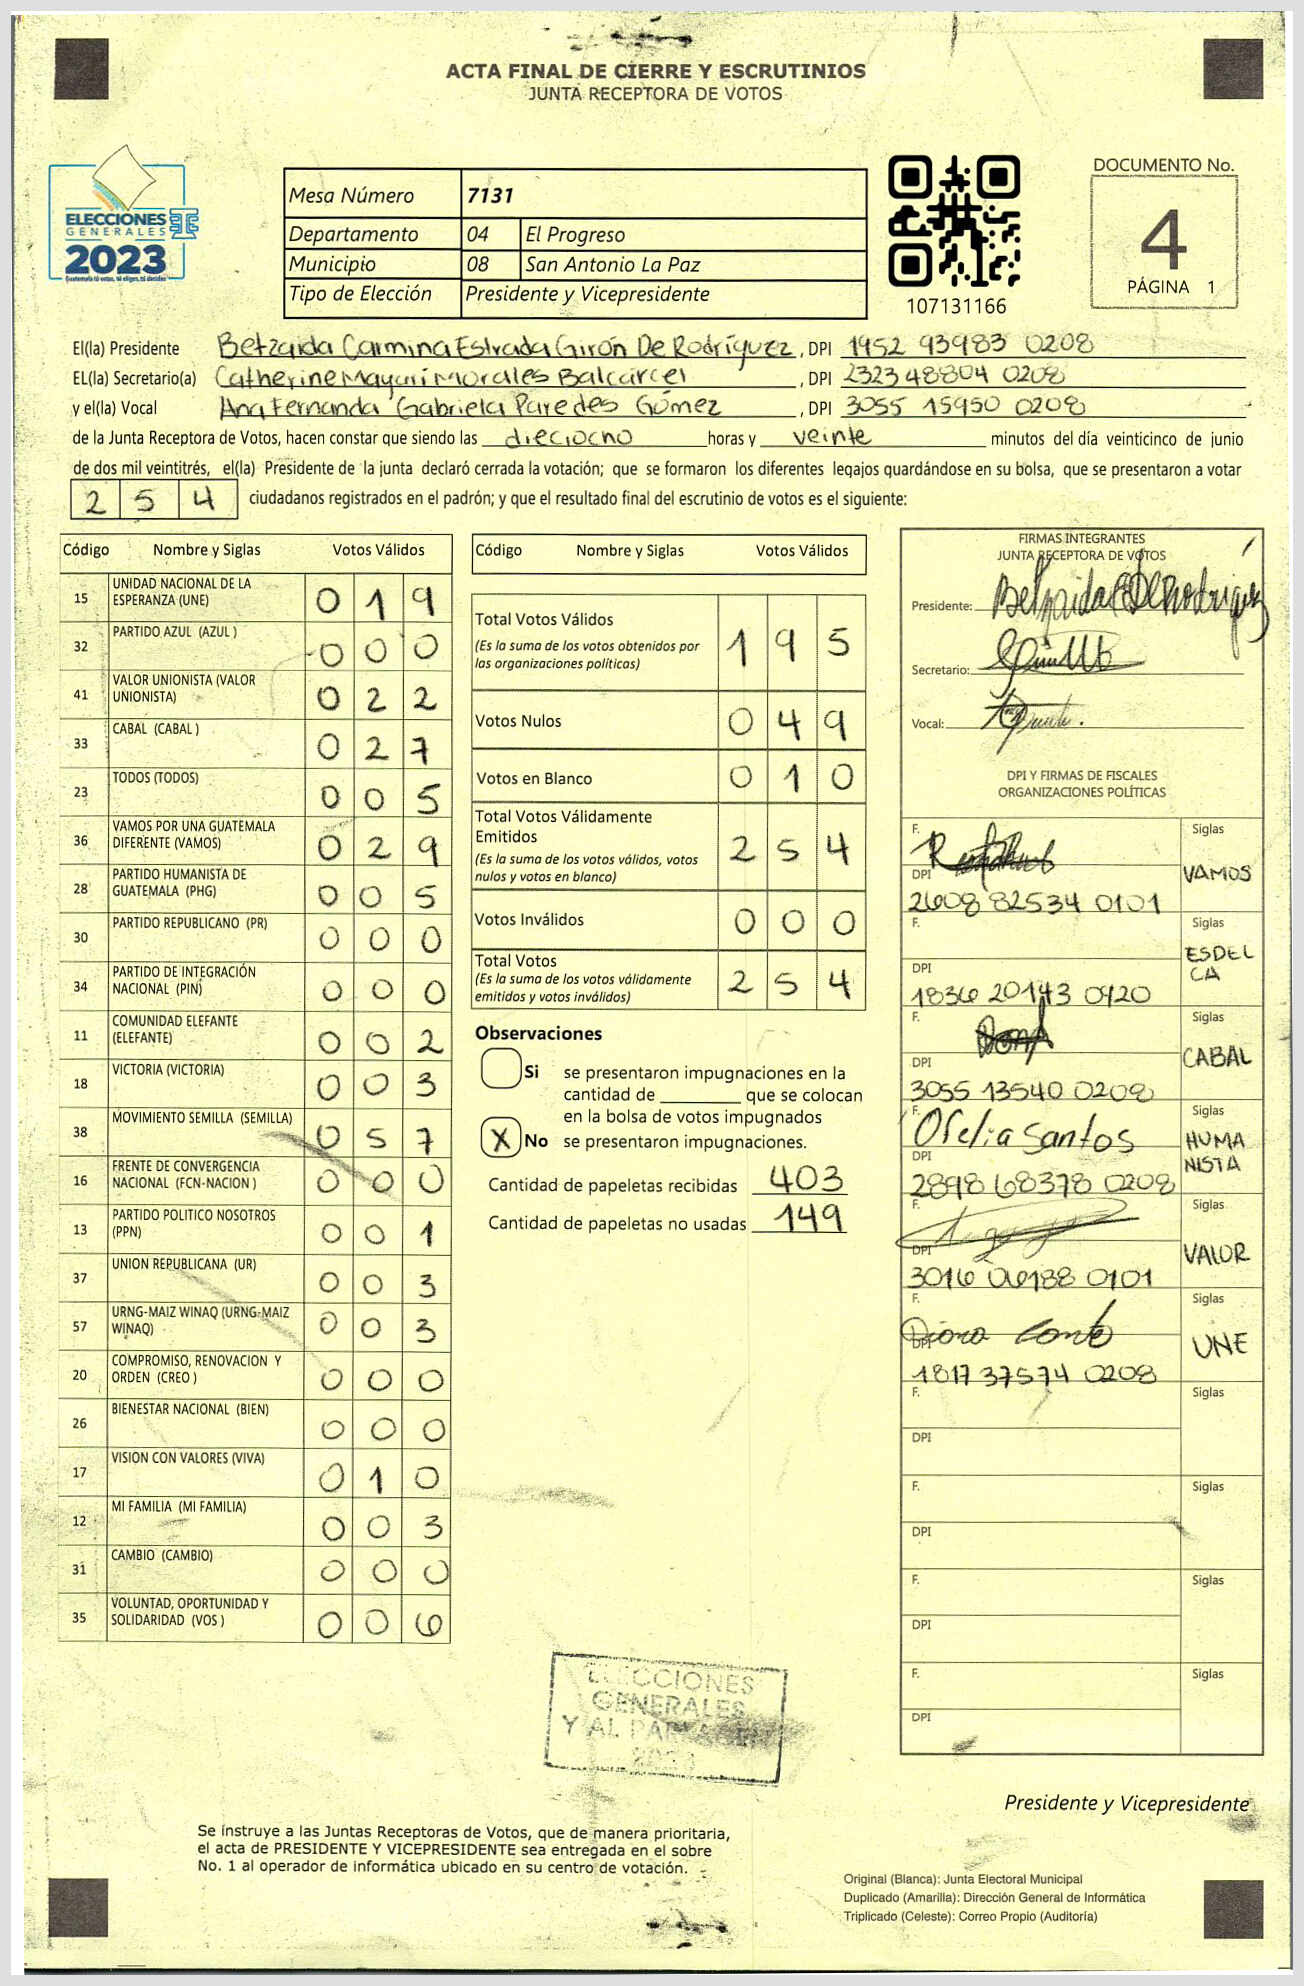 ACTA FINAL DE CIERRE Y ESCRUTINIOS
JUNTA RECEPTORA DE VOTOS
ELECCIONES
GENERALES
2023
Mesa Número 7131
Departamento 04 El Progreso
Municipio 08 San Antonio La Paz
Tipo de Elección Presidente y Vicepresidente
107131166
DOCUMENTO No.
4
PÁGINA 1
El(la) Presidente Betzaida Carmina Estrada Girón De Rodríguez, DPI 1952 93983 0208
EL(la) Secretario(a) Catherine Mayari Morales Balcarcel, DPI 2323 48804 0208
y el(la) Vocal Ana Fernanda Gabriela Paredes Gómez, DPI 3055 15950 0208
de la Junta Receptora de Votos, hacen constar que siendo las dieciocho horas y veinte minutos del día veinticinco de junio
de dos mil veintitrés, el(la) Presidente de la junta declaró cerrada la votación; que se formaron los diferentes legajos guardándose en su bolsa, que se presentaron a votar
2 5 4 ciudadanos registrados en el padrón; y que el resultado final del escrutinio de votos es el siguiente:
Código Nombre y Siglas Votos Válidos
15 UNIDAD NACIONAL DE LA ESPERANZA (UNE) 0 1 9
32 PARTIDO AZUL (AZUL ) 0 0 0
41 VALOR UNIONISTA (VALOR UNIONISTA) 0 2 2
33 CABAL (CABAL ) 0 2 7
23 TODOS (TODOS) 0 0 5
36 VAMOS POR UNA GUATEMALA DIFERENTE (VAMOS) 0 2 9
28 PARTIDO HUMANISTA DE GUATEMALA (PHG) 0 0 5
30 PARTIDO REPUBLICANO (PR) 0 0 0
34 PARTIDO DE INTEGRACIÓN NACIONAL (PIN) 0 0 0
11 COMUNIDAD ELEFANTE (ELEFANTE) 0 0 2
18 VICTORIA (VICTORIA) 0 0 3
38 MOVIMIENTO SEMILLA (SEMILLA) 0 5 7
16 FRENTE DE CONVERGENCIA NACIONAL (FCN-NACION ) 0 0 0
13 PARTIDO POLITICO NOSOTROS (PPN) 0 0 1
37 UNION REPUBLICANA (UR) 0 0 3
57 URNG-MAIZ WINAQ (URNG-MAIZ WINAQ) 0 0 3
20 COMPROMISO, RENOVACION Y ORDEN (CREO ) 0 0 0
26 BIENESTAR NACIONAL (BIEN) 0 0 0
17 VISION CON VALORES (VIVA) 0 1 0
12 MI FAMILIA (MI FAMILIA) 0 0 3
31 CAMBIO (CAMBIO) 0 0 0
35 VOLUNTAD, OPORTUNIDAD Y SOLIDARIDAD (VOS ) 0 0 6
Código Nombre y Siglas Votos Válidos
Total Votos Válidos 1 9 5
(Es la suma de los votos obtenidos por
las organizaciones políticas)
Votos Nulos 0 4 9
Votos en Blanco 0 1 0
Total Votos Válidamente
Emitidos 2 5 4
(Es la suma de los votos válidos, votos
nulos y votos en blanco)
Votos Inválidos 0 0 0
Total Votos 2 5 4
(Es la suma de los votos válidamente
emitidos y votos inválidos)
Observaciones
Si se presentaron impugnaciones en la
cantidad de ________ que se colocan
en la bolsa de votos impugnados
X No se presentaron impugnaciones.
Cantidad de papeletas recibidas 403
Cantidad de papeletas no usadas 149
FIRMAS INTEGRANTES
JUNTA RECEPTORA DE VOTOS
Presidente:
Secretario:
Vocal:
DPI Y FIRMAS DE FISCALES
ORGANIZACIONES POLÍTICAS
F. Siglas
DPI VAMOS
2608 82534 0101
F. Siglas
ESDEL
CA
DPI
1836 20143 0420
F. Siglas
DPI CABAL
3055 13540 0208
F. Ofelia Santos Siglas
HUMA
NISTA
DPI
2898 68378 0208
F. Siglas
DPI VALOR
3016 06188 0101
F. Siglas
DPI UNE
1817 37574 0208
F. Siglas
DPI
F. Siglas
DPI
F. Siglas
DPI
F. Siglas
DPI
ELECCIONES
GENERALES
Y AL
Presidente y Vicepresidente
Se instruye a las Juntas Receptoras de Votos, que de manera prioritaria,
el acta de PRESIDENTE Y VICEPRESIDENTE sea entregada en el sobre
No. 1 al operador de informática ubicado en su centro de votación.
Original (Blanca): Junta Electoral Municipal
Duplicado (Amarilla): Dirección General de Informática
Triplicado (Celeste): Correo Propio (Auditoría)